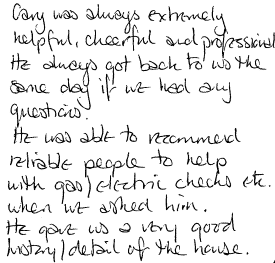 Cary was always extremely
helpful, cheerful and professional
He always got back to us the
same day if we had any
questions.
He was able to recommend
reliable people to help
with gas/electric checks etc.
when we asked him.
He gave us a very good
history/detail of the house.